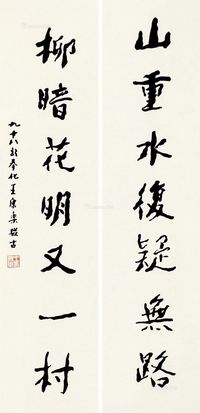 山重水復疑無路
柳暗花明又一村
九十八於奉化王康樂啟古